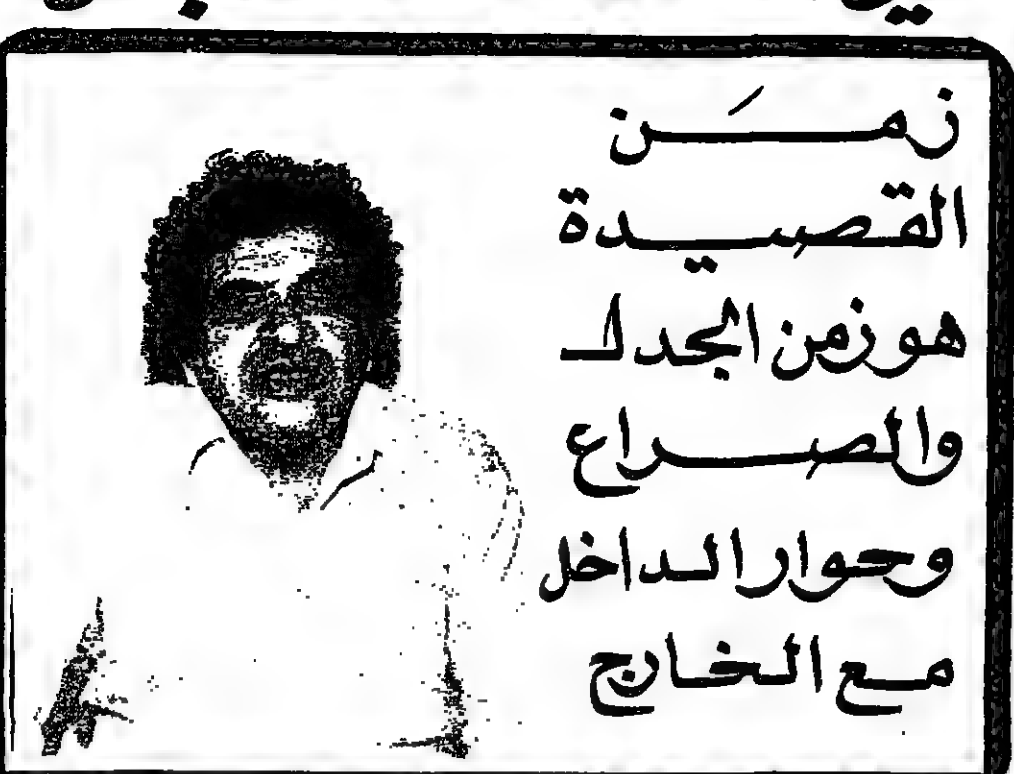 زمَن
القصيدة
هو زمن الجدل
والصراع
وحوار الداخل
مع الخارج